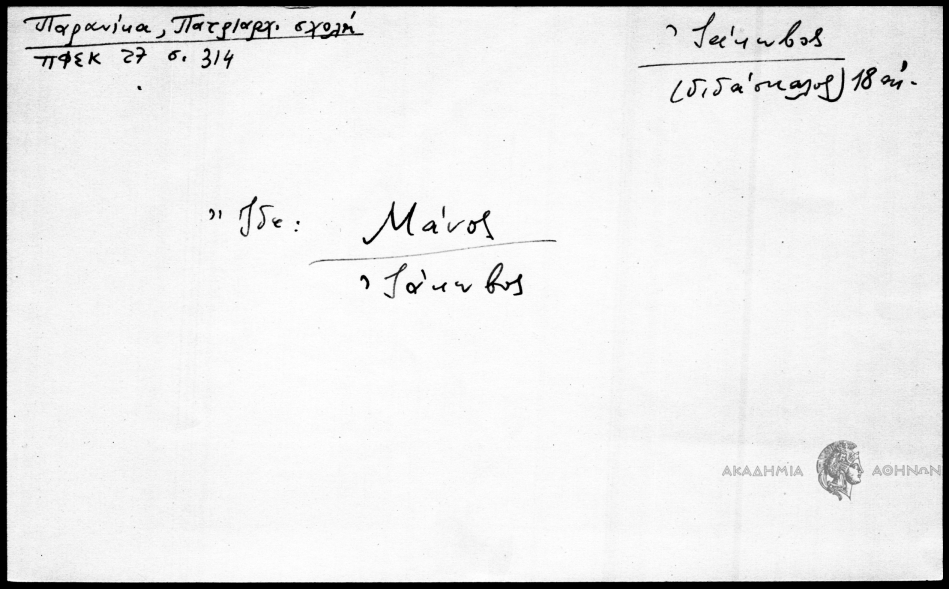 Παρανίκα, Πατριαρχ. σχολή
ΠΦΣΚ 27 σ. 314
Ἰάκωβος
(διδάσκαλος) 18 αἰ.
Ἴδε: Μάνος
Ἰάκωβος
ΑΚΑΔΗΜΙΑ ΑΘΗΝΩΝ